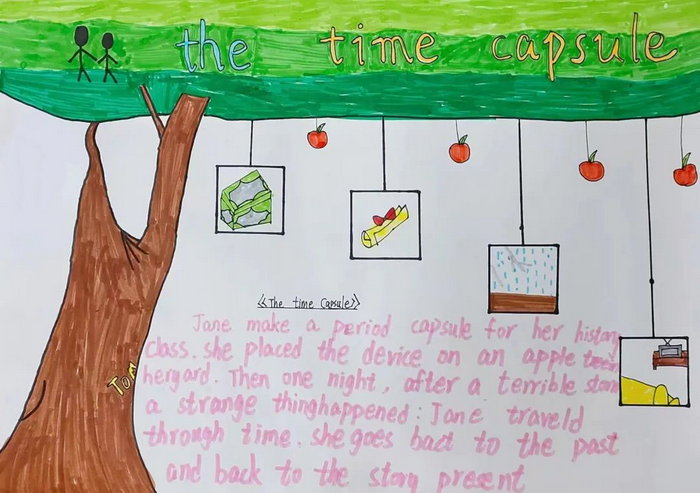 the time capsule
《The time Capsule》
Jane make a period capsule for her history
class. she placed the device on an apple
hergard. Then one night, after a terrible storm
a strange thinghappened: Jane traveld
through time. she goes bact to the past
and back to the story present
Tom